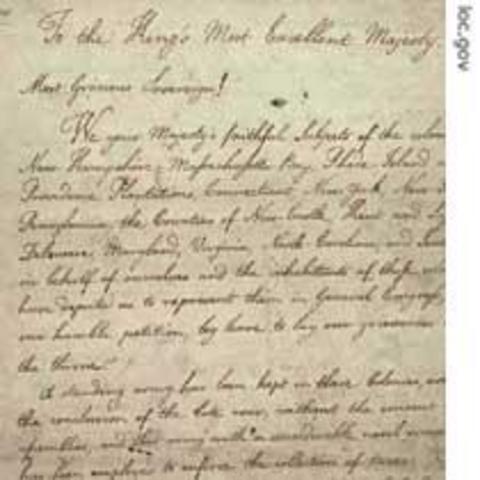 To the King's Most Excellent Majesty.
Most Gracious Sovereign!
We your Majesty's faithful Subjects of the colon
New Hampshire, Massachusetts Bay, Rhode Island
Providence Plantations, Connecticut, New York, New
Pennsylvania, the Counties of New Castle, Kent and
Delaware, Maryland, Virginia, North Carolina, and
in behalf of ourselves and the inhabitants of these
have deputed us to represent them in General Congress,
our humble petition, beg leave to lay our grievances
the throne.
A standing army has been kept in these Colonies,
the conclusion of the late war, without the consent
assemblies, and this army with a considerable naval
has been employed to enforce the collection of taxes.
loc.gov